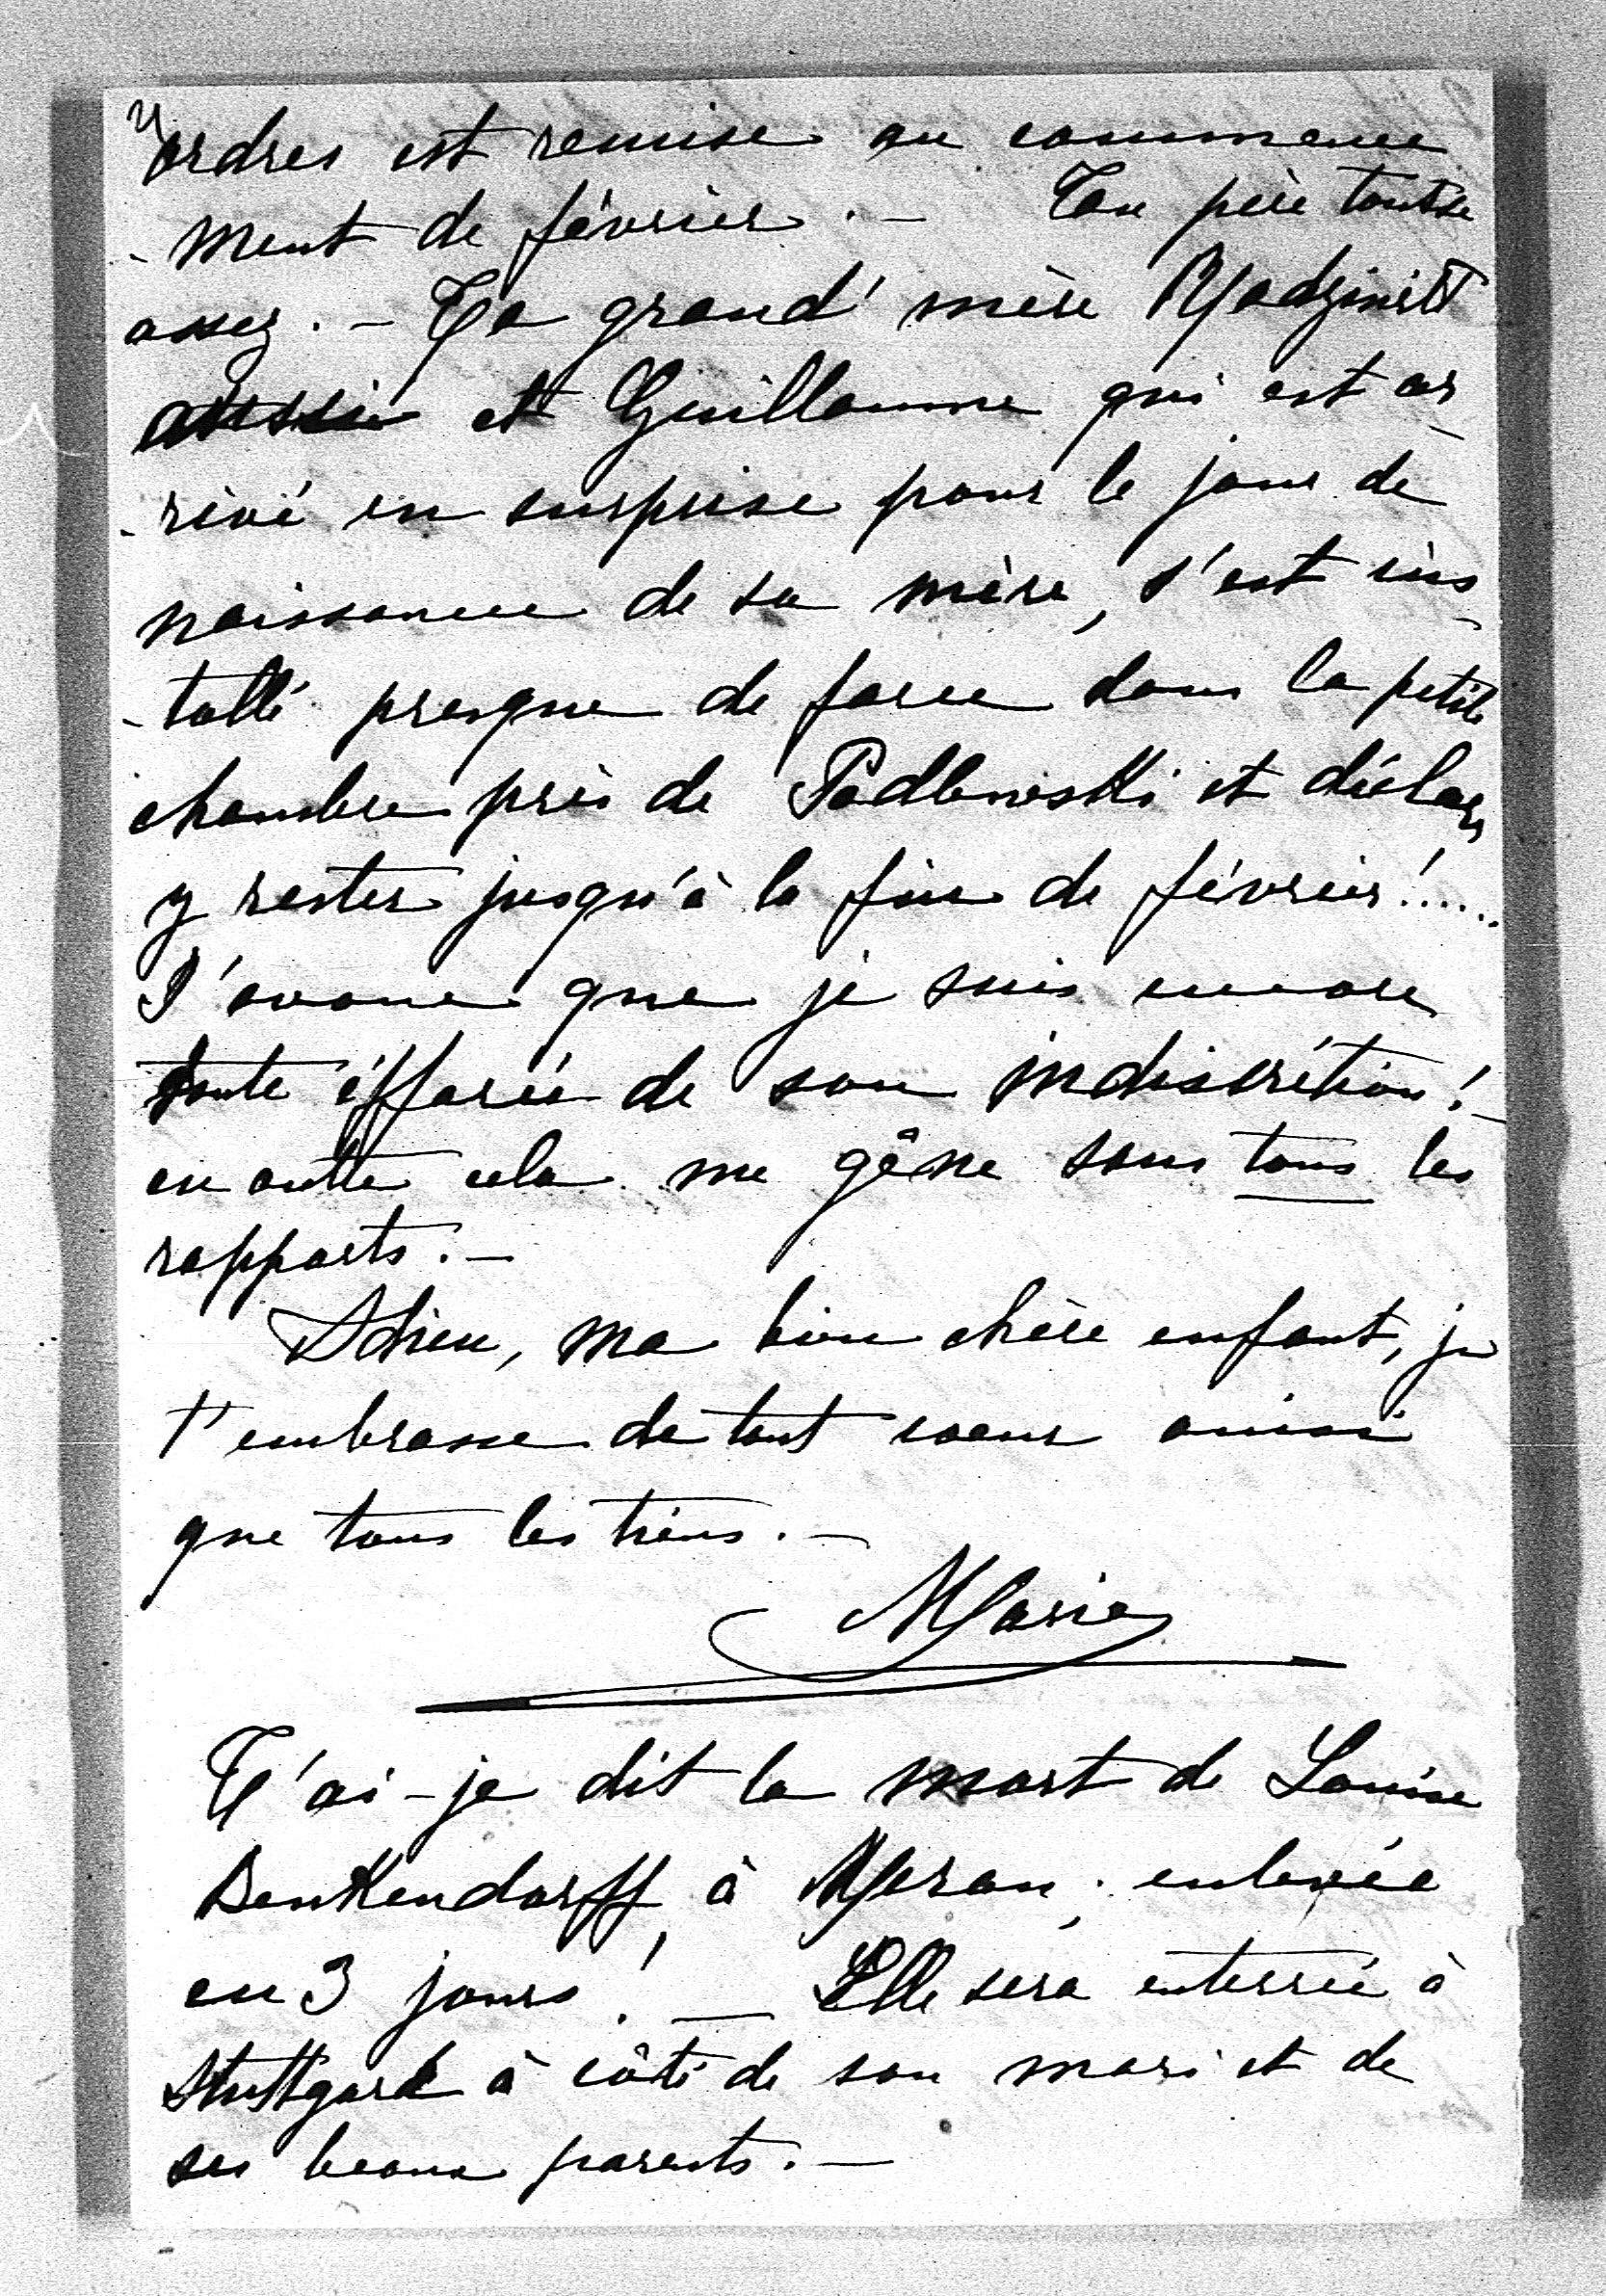 ordres est remise au commence
-ment de février. — Ton père tousse
assez. — Ta grand'mère Radziwill
aussi et Guillaume qui est ar-
-rivé en surprise pour le jour de
naissance de sa mère, s'est ins-
-tallé presque de force dans la petite
chambre près de Podlewski et déclare
y rester jusqu'à la fin de février!.....
J'avoue que je suis encore
toute éffarée de son indiscrétion! —
en outre cela me gêne sous tous les
rapports. —
Adieu, ma bien chère enfant, je
t'embrasse de tout coeur ainsi
que tous les tiens. —
Marie
T'ai-je dit la mort de Louise
Benkendorff, à Meran; enlevée
en 3 jours! — Elle sera enterrée à
Stuttgard à côté de son mari et de
ses beaux parents. —